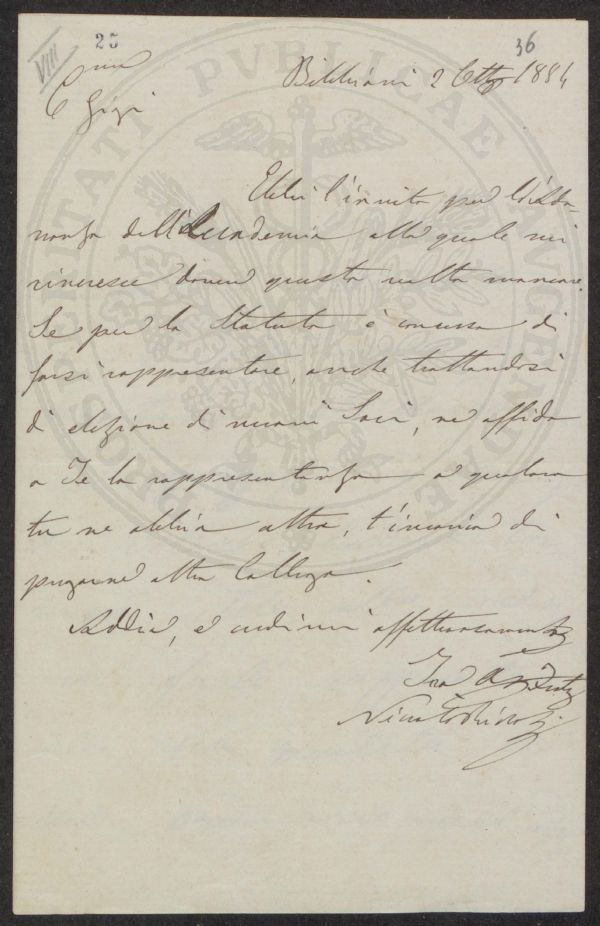 25
36
VIII
C.mo Gigi
Bibbiani 2 Ottbre 1884
Ebbi l'invito per l'Adu-
nanza dell'Accademia alla quale mi
rincresce dover questa volta mancare.
Se per lo Statuto è concesso di
farsi rappresentare, anche trattandosi
di elezione di nuovi Soci, ne affido
a Te la rappresentanza e qualora
tu ne abbia altra, t'incarico di
pregarne altro Collega.
Addio, e credimi affettuosamente
Tuo
PROSPERITATI PUBLICAE AUGENDAE